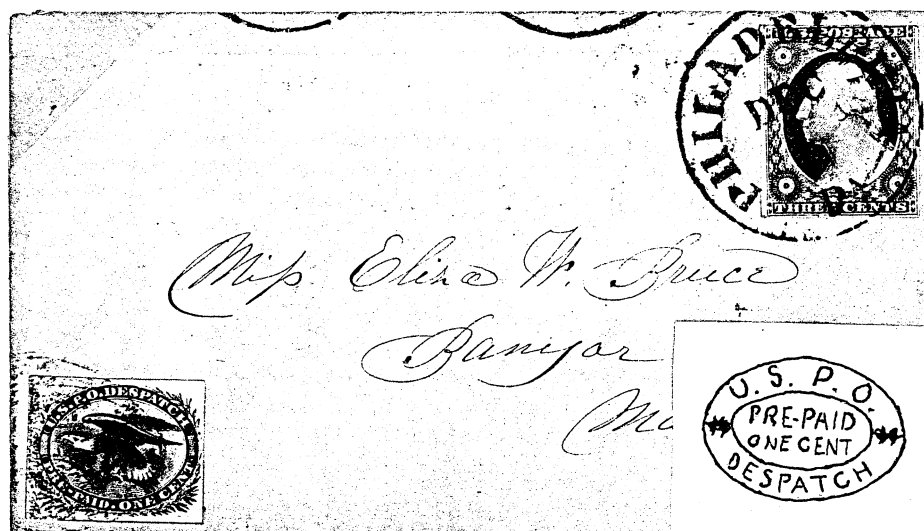 PHILADELPHIA
DEC
PA
U.S. POSTAGE
THREE CENTS
Miss. Eliza W. Bruce
Bangor
U.S.P.O. DESPATCH
PRE-PAID ONE CENT
U. S. P. O.
PRE-PAID
ONE CENT
DESPATCH